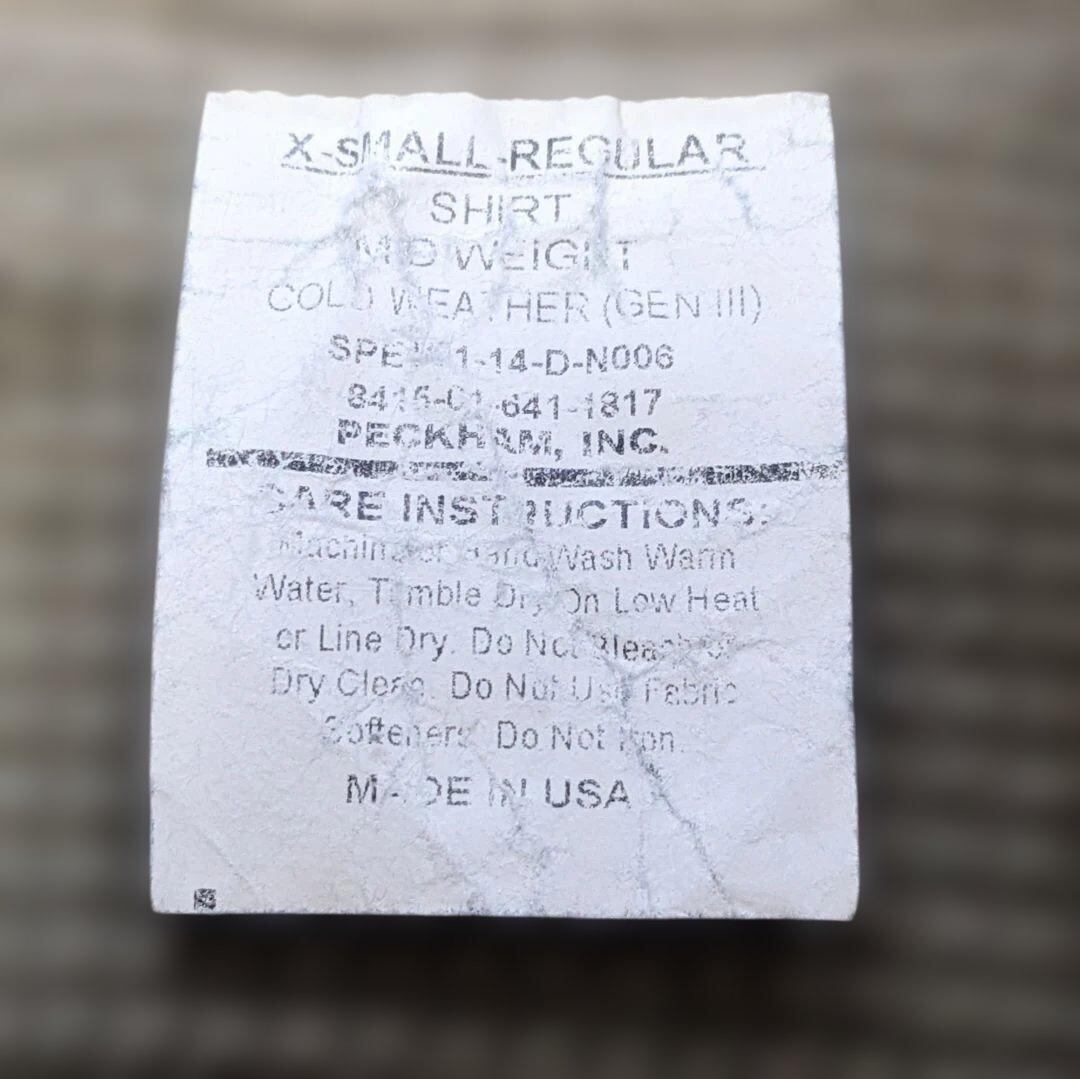 X-SMALL-REGULAR
SHIRT
MID WEIGHT
COLD WEATHER (GEN III)
1-14-D-N006
8415-01-641-1817
PECKHAM, INC.
CARE INSTRUCTIONS:
Machine or Hand Wash Warm
Water, Tumble Dry On Low Heat
or Line Dry. Do Not Bleach or
Dry Clean. Do Not Use Fabric
Softeners. Do Not Iron.
MADE IN USA